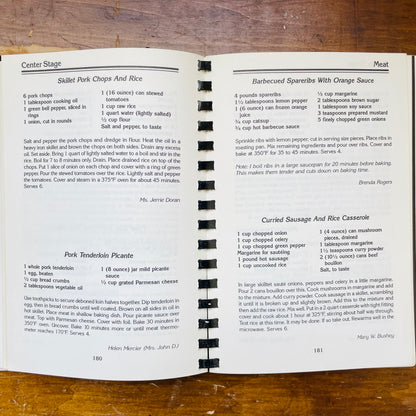 Center Stage
Skillet Pork Chops And Rice
6 pork chops
1 tablespoon cooking oil
1 green bell pepper, sliced in
rings
1 onion, cut in rounds
1 (16 ounce) can stewed
tomatoes
1 cup raw rice
1 quart water (lightly salted)
½ cup flour
Salt and pepper, to taste
Salt and pepper the pork chops and dredge in flour. Heat the oil in a
heavy iron skillet and brown the chops on both sides. Drain any excess
oil. Set aside. Bring 1 quart of lightly salted water to a boil and stir in the
rice. Boil for 7 to 8 minutes only. Drain. Place drained rice on top of the
chops. Put 1 slice of onion on each chop and cover with a ring of green
pepper. Pour the stewed tomatoes over the rice. Lightly salt and pepper
the tomatoes. Cover and steam in a 375°F oven for about 45 minutes.
Serves 6.
Ms. Jerrie Doran
Pork Tenderloin Picante
1 whole pork tenderloin
1 egg, beaten
½ cup bread crumbs
2 tablespoons vegetable oil
1 (8 ounce) jar mild picante
sauce
½ cup grated Parmesan cheese
Use toothpicks to secure deboned thin halves together. Dip tenderloin in
egg, then in bread crumbs until well coated. Brown on all sides in oil in
hot skillet. Place meat in shallow baking dish. Pour picante sauce over
meat. Top with Parmesan cheese. Cover with foil. Bake 30 minutes in
350°F oven. Uncover. Bake 10 minutes more or until meat thermo-
meter reaches 170°F. Serves 4.
Helen Mercier (Mrs. John D.)
180
Meat
Barbecued Spareribs With Orange Sauce
4 pounds spareribs
1½ tablespoons lemon pepper
1 (6 ounce) can frozen orange
juice
¾ cup catsup
¾ cup hot barbecue sauce
½ cup margarine
2 tablespoons brown sugar
1 tablespoon soy sauce
3 teaspoons prepared mustard
5 finely chopped green onions
Sprinkle ribs with lemon pepper, cut in serving size pieces. Place ribs in
roasting pan. Mix remaining ingredients and pour over ribs. Cover and
bake at 350°F for 35 to 45 minutes. Serves 4.
Note: I boil ribs in a large saucepan for 20 minutes before baking.
This makes them tender and cuts down on baking time.
Brenda Rogers
Curried Sausage And Rice Casserole
1 cup chopped onion
1 cup chopped celery
1 cup chopped green pepper
Margarine for sautéing
1 pound hot sausage
1 cup uncooked rice
1 (4 ounce) can mushroom
pieces, drained
1 tablespoon margarine
1½ teaspoons curry powder
2 (10½ ounce) cans beef
bouillon
Salt, to taste
In large skillet sauté onions, peppers and celery in a little margarine.
Pour 2 cans bouillon over this. Cook mushrooms in margarine and add
to the mixture. Add curry powder. Cook sausage in a skillet, scrambling
it until it is broken up and slightly brown. Add this to the mixture and
then add the raw rice. Mix well. Put in a 2 quart casserole with tight fitting
cover and cook about 1 hour at 325°F, stirring about half way through.
Test rice at this time. It may be done. If so take out. Rewarms well in the
microwave. Serves 6.
Mary W. Bushey
181